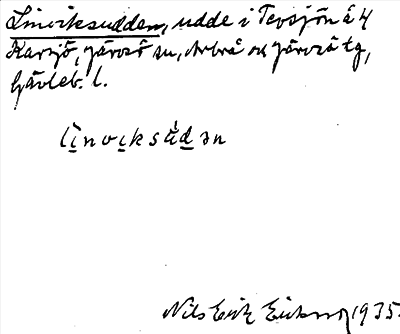 Linviksudden, udde i Tevsjön å 4
Karsjö, Järvsö sn, Arbrå ok Järvsö tg,
Gävleb. l.
lìnviksùdən
Nils Erik Erikson 1935.